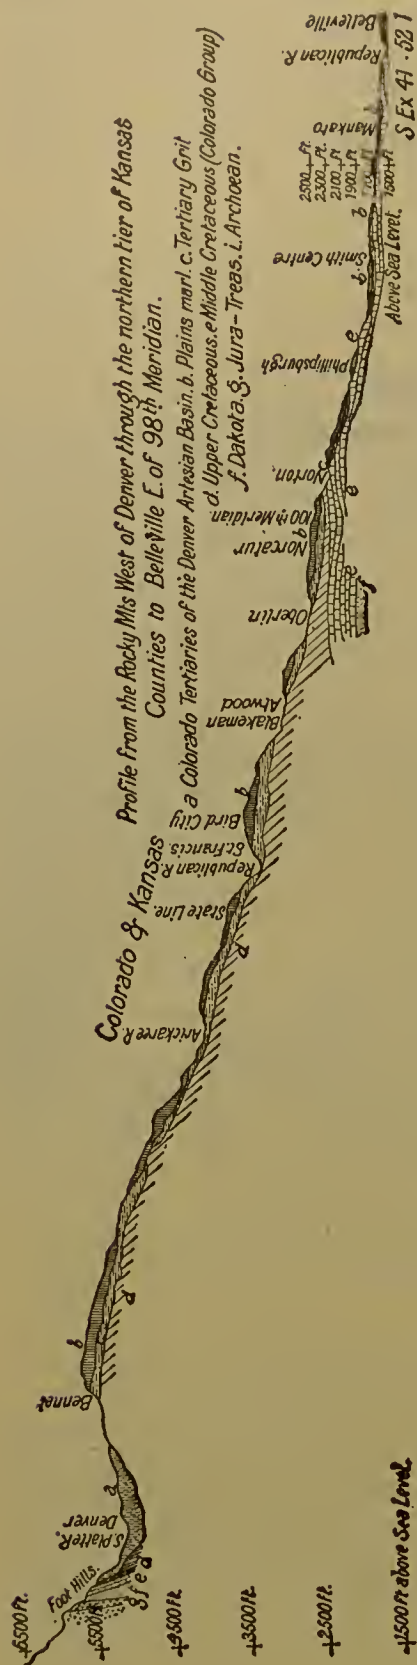 Profile From the Rocky Mts West of Denver through the northern tier of Kansas
Counties to Belleville E. of 98th Meridian.
a Colorado Tertiaries of the Denver Artesian Basin. b. Plains marl. c. Tertiary Grit
d. Upper Cretaceous. e Middle Cretaceous (Colorado Group)
f. Dakota. g. Jura-Treas. i. Archoean.
Colorado & Kansas
6500 Ft.
5500 ft
4500 ft.
3500 ft.
2500 ft.
1500 ft above Sea Level
Foot Hills.
g f e d
S. Platte R.
Denver
a
Bennet
b
d
Arickaree R.
State Line.
d
Republican R.
St. Francis.
Bird City
b
Blakeman
Atwood
Oberlin
Norcatur
b
100th Meridian.
Norton.
e
e
f
Phillipsburgh
e
Smith Centre
b.
b
2500 Ft.
2300 Ft.
2100 Ft
1900 Ft
1500 Ft
Above Sea Level.
Mankato
Republican R.
Belleville
S Ex 41 - 52 1